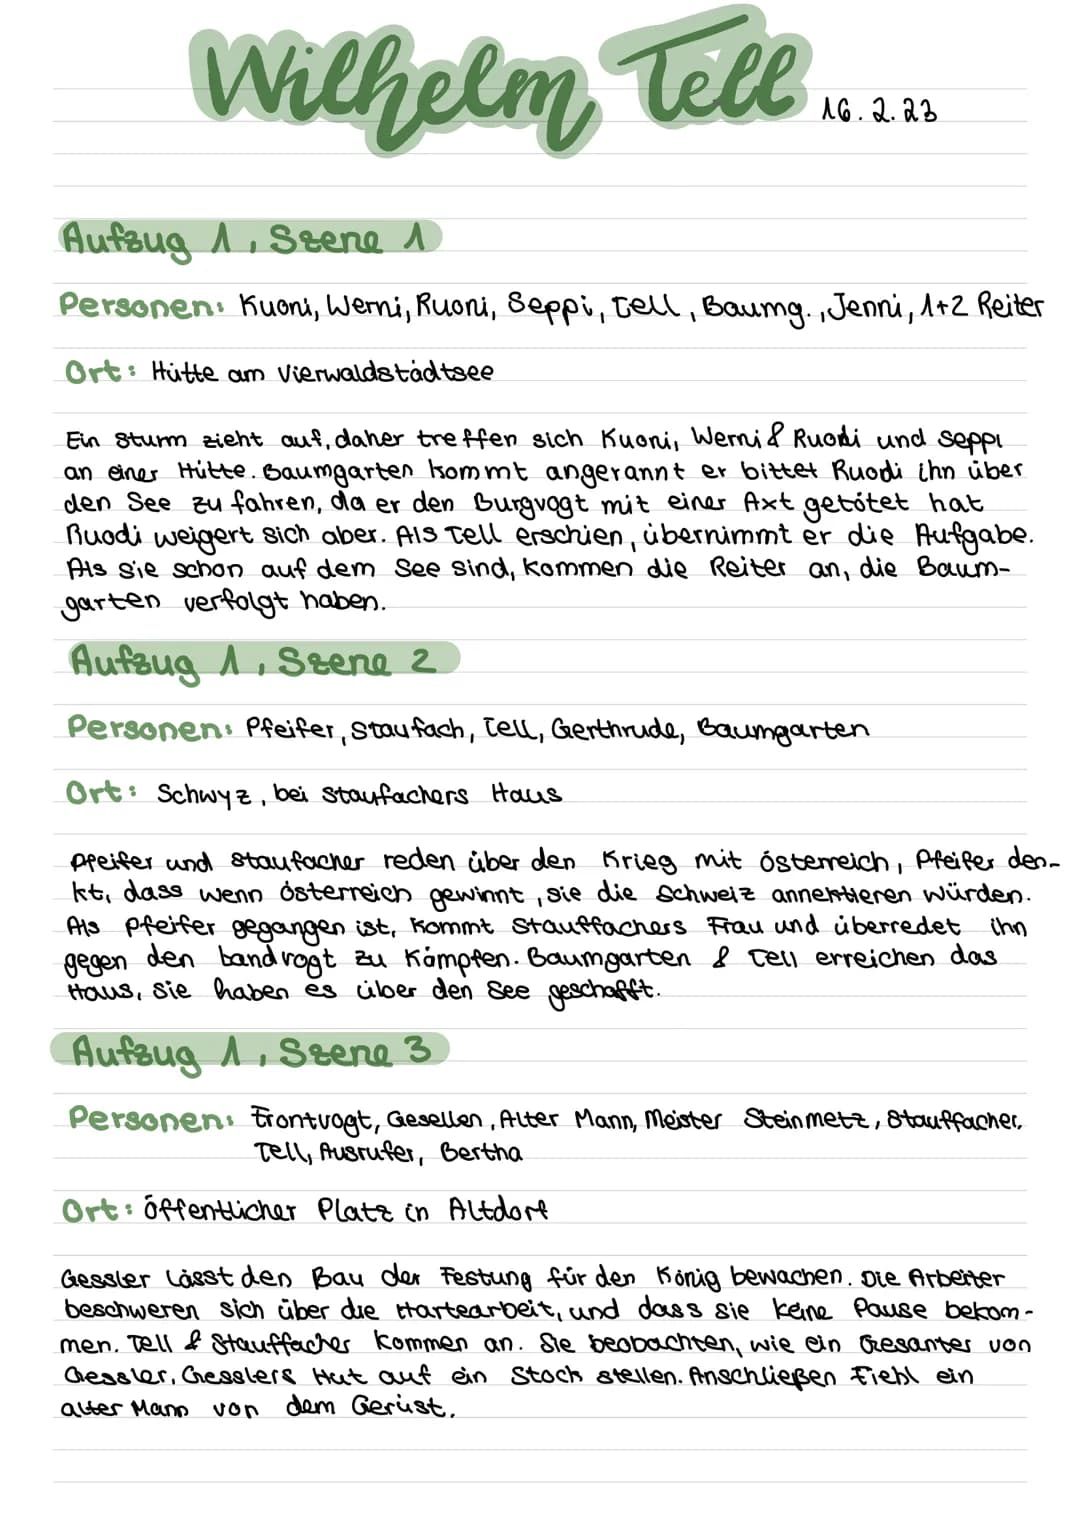 Wilhelm Tell 16.2.23
Aufzug 1, Szene 1
Personen: Kuoni, Werni, Ruoni, Seppi, Tell, Baumg., Jenni, 1+2 Reiter
Ort: Hütte am Vierwaldstädtsee
Ein Sturm zieht auf, daher treffen sich Kuoni, Werni & Ruodi und Seppi
an einer Hütte. Baumgarten kommt angerannt er bittet Ruodi ihn über
den See zu fahren, da er den Burgvogt mit einer Axt getötet hat
Ruodi weigert sich aber. Als Tell erschien, übernimmt er die Aufgabe.
Als sie schon auf dem See sind, kommen die Reiter an, die Baum-
garten verfolgt haben.
Aufzug 1, Szene 2
Personen: Pfeifer, Staufach, Tell, Gerthrude, Baumgarten
Ort: Schwyz, bei Staufachers Haus
Pfeifer und Staufacher reden über den Krieg mit Österreich, Pfeifer den-
kt, dass wenn Österreich gewinnt, sie die Schweiz annektieren würden.
Als Pfeifer gegangen ist, kommt Stauffachers Frau und überredet ihn
gegen den bandvogt zu kämpfen. Baumgarten & Tell erreichen das
Haus, sie haben es über den See geschafft.
Aufzug 1, Szene 3
Personen: Frontvogt, Gesellen, Alter Mann, Meister Steinmetz, Stauffacher,
Tell, Ausrufer, Bertha
Ort: Öffentlicher Platz in Altdorf
Gessler lässt den Bau der Festung für den König bewachen. Die Arbeiter
beschweren sich über die Hartearbeit, und dass sie keine Pause bekom-
men. Tell & Stauffacher kommen an. Sie beobachten, wie ein Gesanter von
Gessler, Gesslers Hut auf ein Stock stellen. Anschließen Fiehl ein
alter Mann von dem Gerüst.